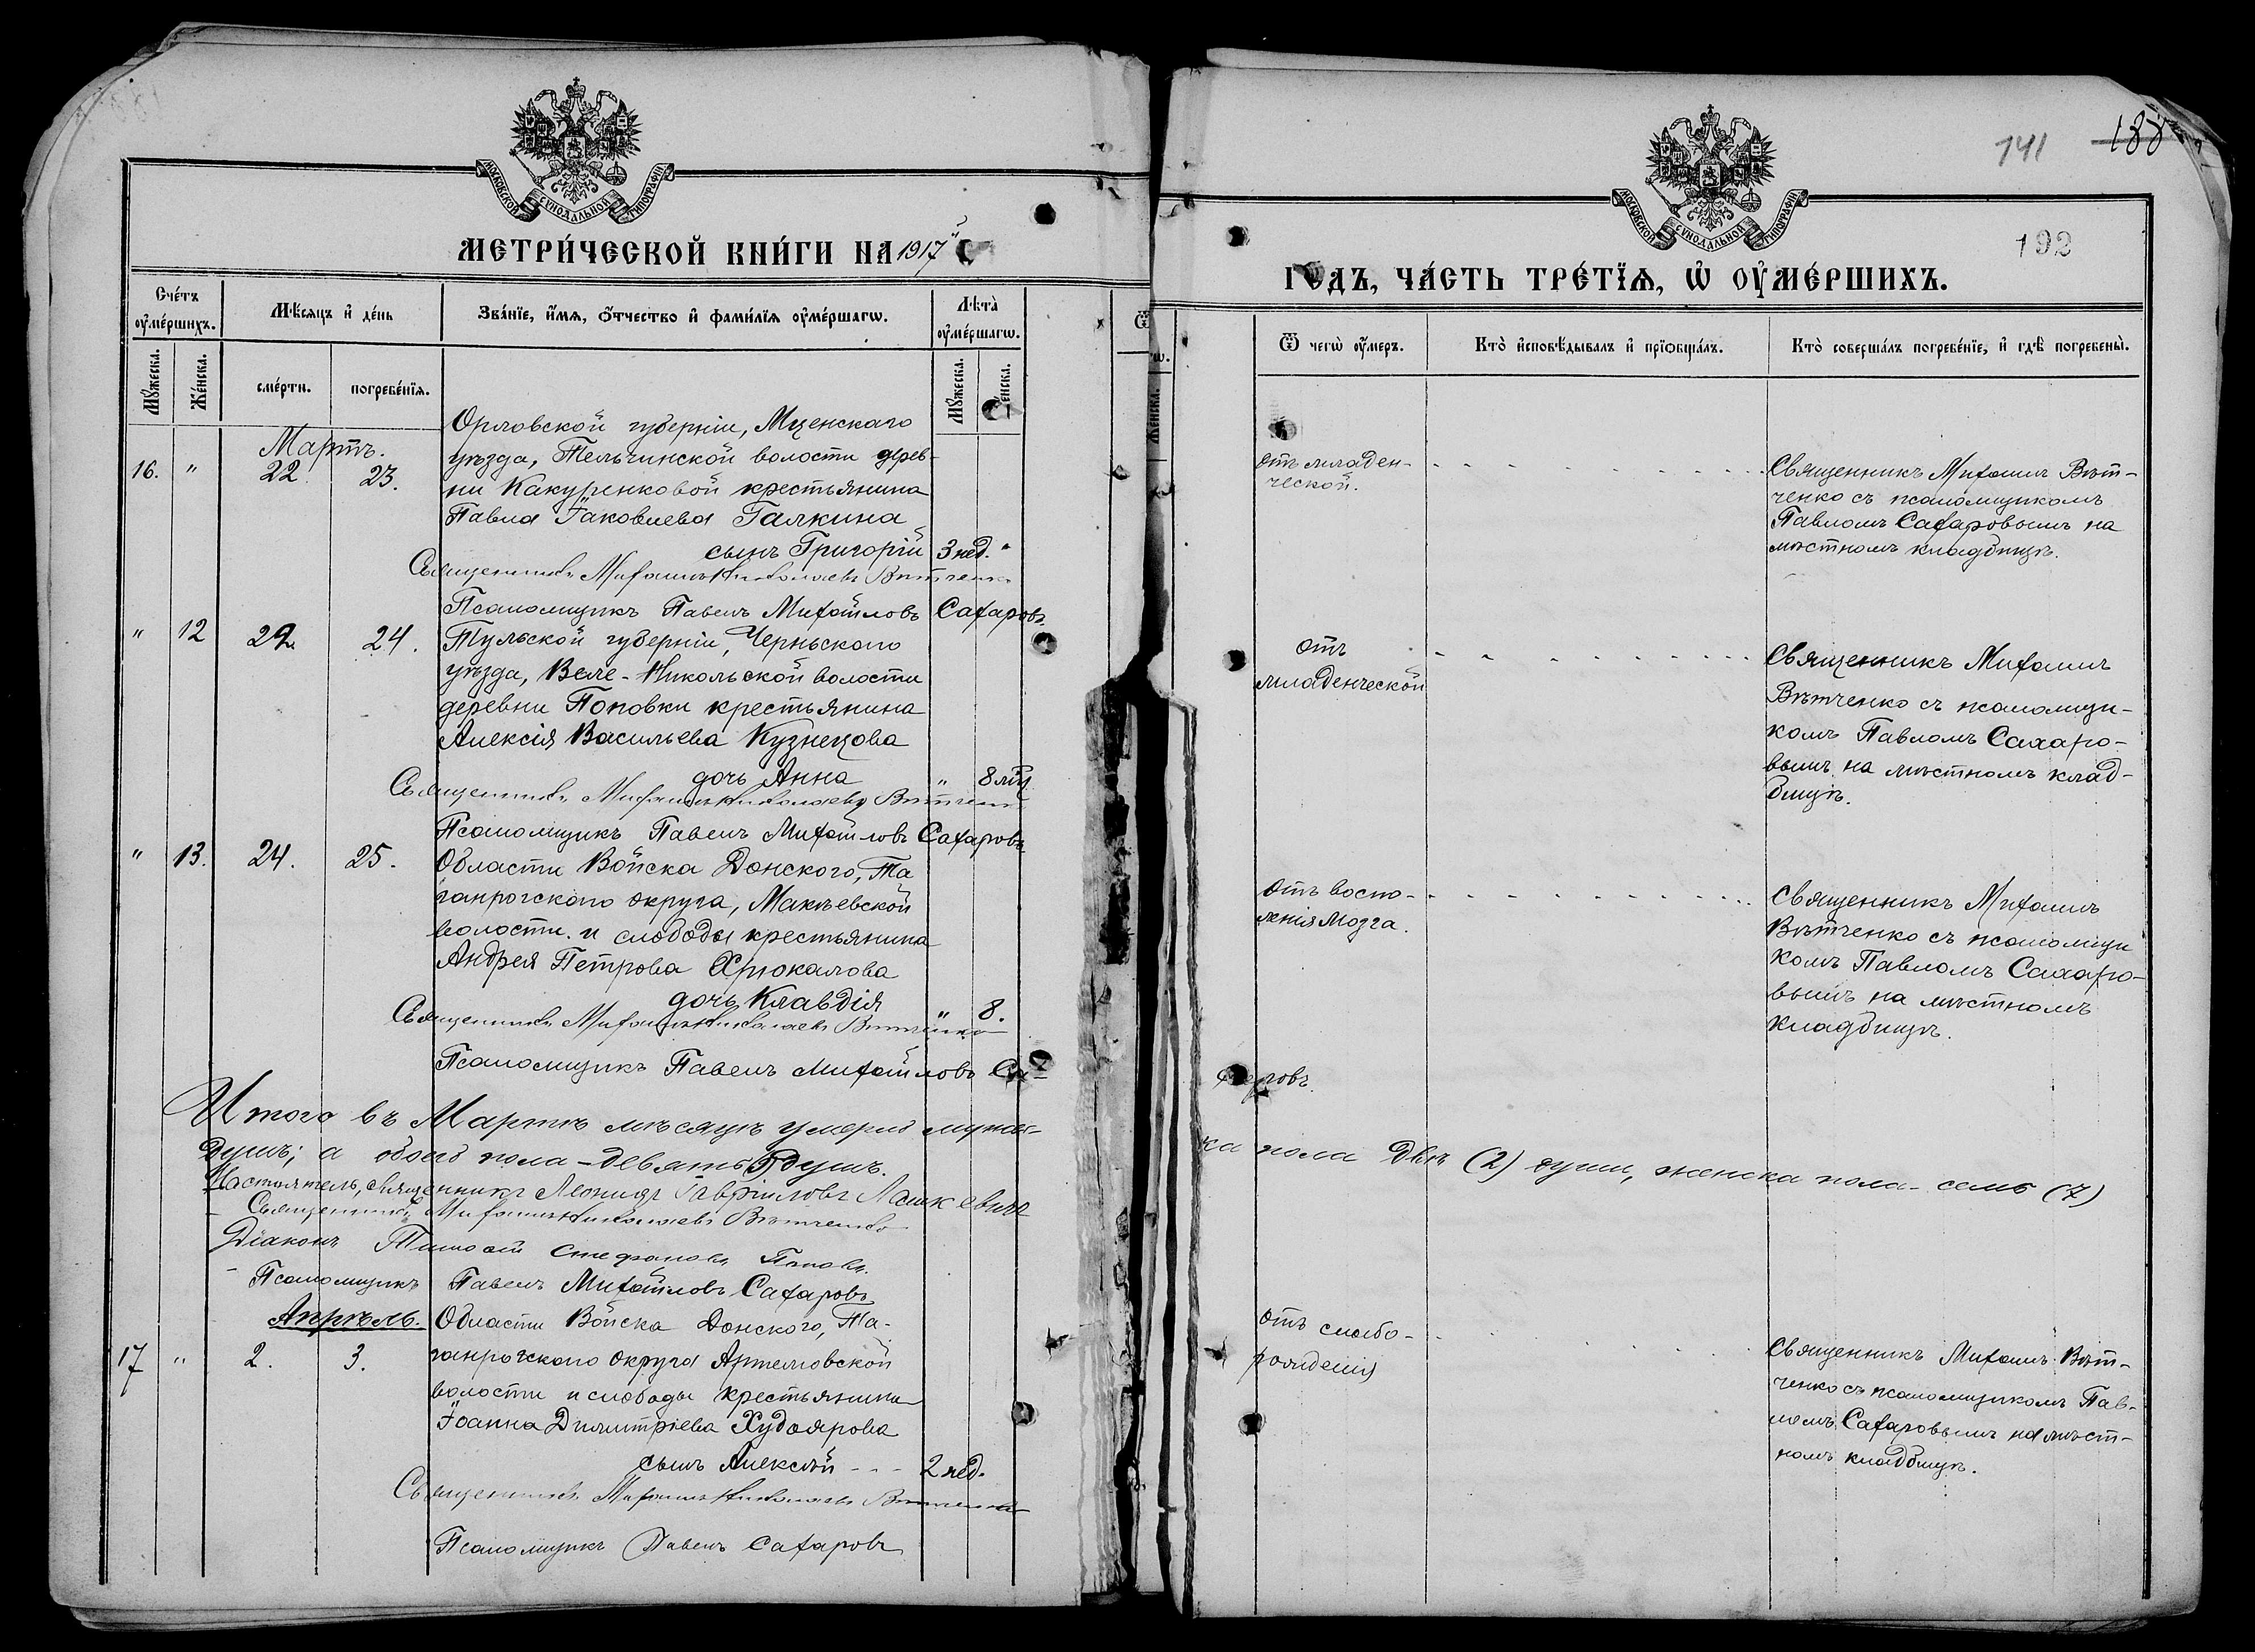 МОСКОВСКОЙ СУНОДАЛЬНОЙ ТИПОГРАФІИ
МЕТРИ́ЧЕСКОЙ КНИ́ГИ НА 1917й
Сче́тъ оу҆ме́ршихъ.
Мѣ́сяцъ и҆ де́нь
Зва́нїе, и҆́мѧ, ѻ҆́тчество и҆ фами́лїѧ оу҆ме́ршагѡ.
Лѣ́та оу҆ме́ршагѡ.
Мꙋ́жеска.
Же́нска.
сме́рти.
погребе́нїѧ.
Мꙋ́жеска.
Мартъ.
16. " 22. 23.
Орловской губерніи, Мценскаго
уѣзда, Тельчинской волости дерев-
ни Какуренковой крестьянина
Павла Іаковлева Галкина
сынъ Григорій 3 нед. "
Священникъ Михаилъ Николаевъ Вѣтченко
Псаломщикъ Павелъ Михайловъ Сахаровъ.
" 12 22 24.
Тульской губерніи, Черньскаго
уѣзда, Веле-Никольской волости
деревни Поповки крестьянина
Алексія Васильева Кузнецова
дочь Анна " 8 мѣц
Священникъ Михаилъ Николаевъ Вѣтченко
Псаломщикъ Павелъ Михайловъ Сахаровъ
" 13. 24. 25.
Области Войска Донского, Та
ганрогскаго округа, Макѣевской
волости и слободы крестьянина
Андрея Петрова Хрюкалова
дочь Клавдія " 8.
Священникъ Михаилъ Николаевъ Вѣтченко
Псаломщикъ Павелъ Михайловъ Са-
Итого въ Мартѣ мѣсяцѣ умерло мужес-
душъ; а обоего пола - девять (9) душъ.
Настоятель, священникъ Леонидъ Гавріиловъ Лашкевичъ
Священникъ Михаилъ Николаевъ Вѣтченко
Діаконъ Тимофей Стефановъ Поповъ.
Псаломщикъ Павелъ Михайловъ Сахаровъ
Апрѣль.
17 " 2. 3.
Области Войска Донского, Та-
ганрогскаго округа Артемовской
волости и слободы крестьянина
Іоанна Димитріева Худоярова
сынъ Алексѣй - - - 2 нед.
Священникъ Михаилъ Николаевъ Вѣтченко
Псаломщикъ Павелъ Сахаровъ
141 188
МОСКОВСКОЙ СУНОДАЛЬНОЙ ТИПОГРАФІИ
192
ГОДЪ, ЧА́СТЬ ТРЕ́ТЇѦ, Ѡ҆ ОУ҆МЕ́РШИХЪ.
Ѿ чегѡ̀ оу҆́меръ.
Кто̀ и҆сповѣ́дывалъ и҆ прїѡбща́лъ.
Кто̀ соверша́лъ погребе́нїе, и҆ гдѣ̀ погребены̀.
Отъ младен-
ческой.
Священникъ Михаилъ Вѣт-
ченко съ псаломщикомъ
Павломъ Сахаровымъ на
мѣстномъ кладбищѣ.
Отъ
младенческой
Священникъ Михаилъ
Вѣтченко съ псаломщи-
комъ Павломъ Сахаро-
вымъ на мѣстномъ клад-
бищѣ.
Отъ воспа-
ленія мозга.
Священникъ Михаилъ
Вѣтченко съ псаломщи
комъ Павломъ Сахаро-
вымъ на мѣстномъ
кладбищѣ.
харовъ.
ка пола двѣ (2) души, женска пола - семь (7)
Отъ слабо-
рожденія
Священникъ Михаилъ Вѣт-
ченко съ псаломщикомъ Пав-
ломъ Сахаровымъ на мѣст-
номъ кладбищѣ.